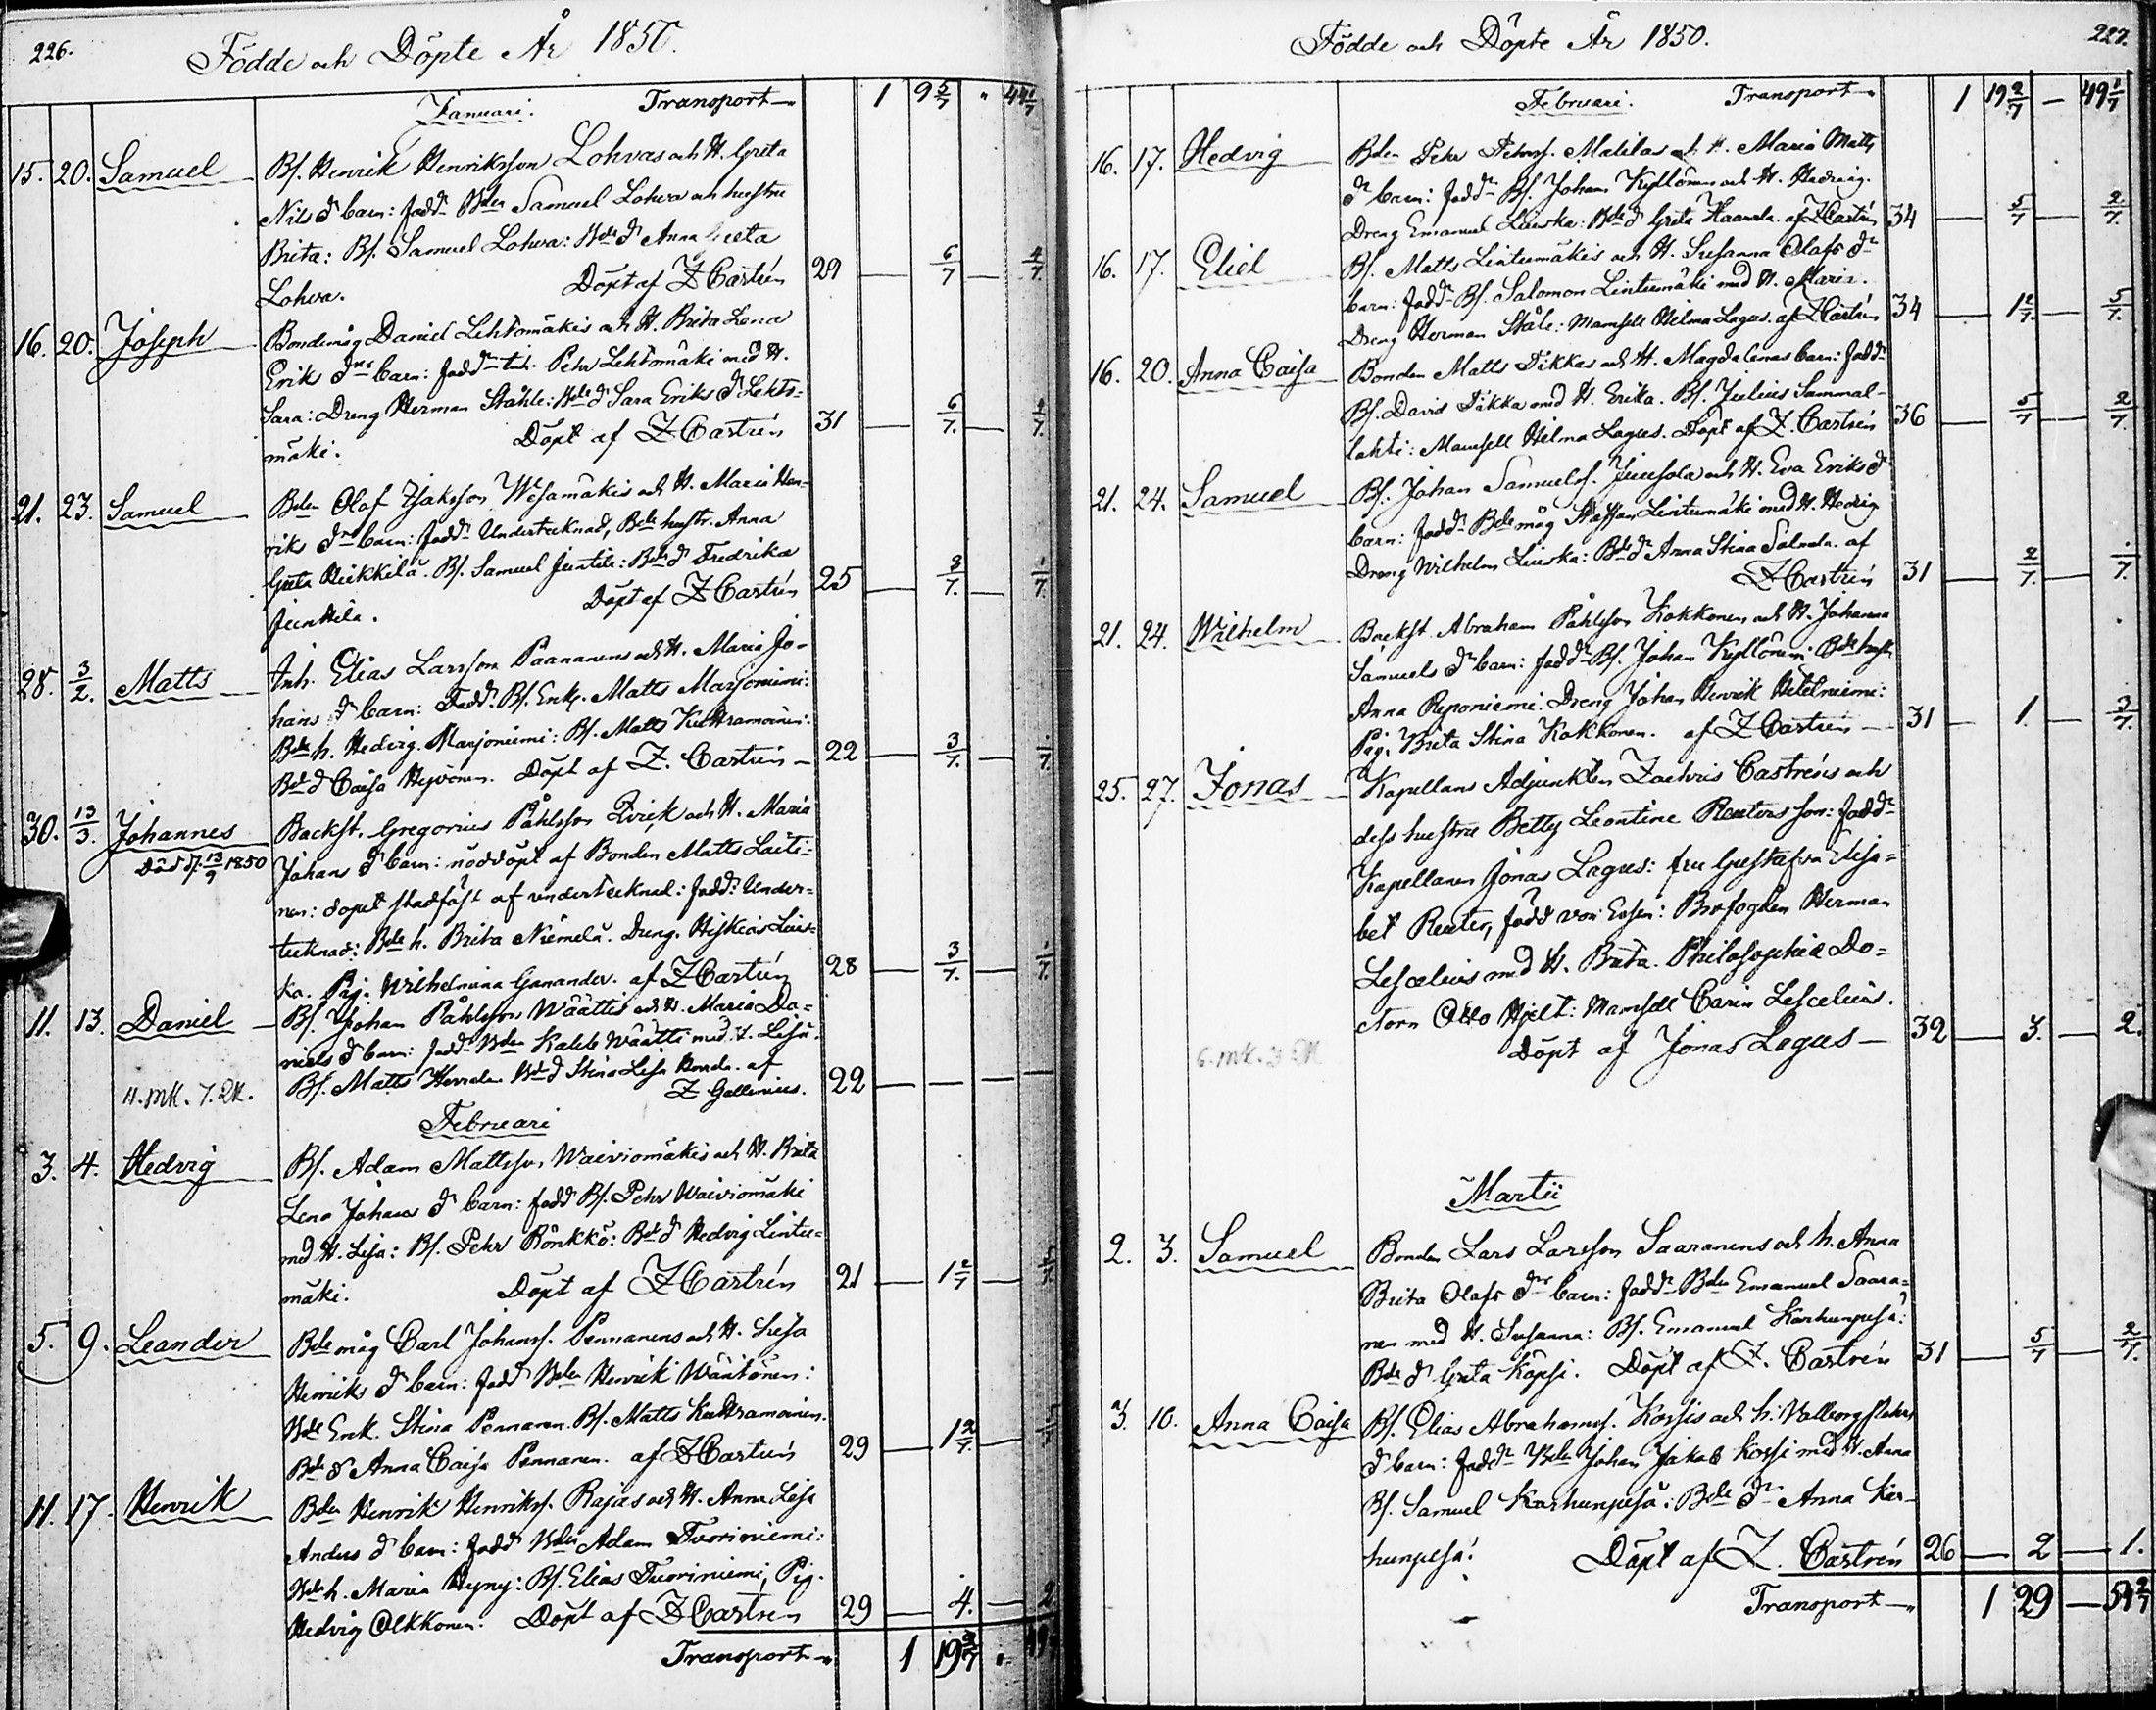 226.
Födde och Döpte År 1850.
Januari. Transport 1 9 5/7 " 44 1/7
15. 20. Samuel Bs. Henrik Henriksson Lohvas och H. Greta
Nils dr barn: fadd: Bden Samuel Lohva och hustru
Brita: Bs. Samuel Lohva: Bde d Anna Greta
Lohva. Döpt af Z Castrén 29 — 6/7 — 2/7
16. 20. Joseph Bondemåg Daniel Lehtomäkis och H. Brita Lena
Eriks drs barn: fadd: Inh. Pehr Lehtomäki med H.
Sara: Dreng Herman Ståhle: Bde d Sara Eriks dr Lehto=
mäki. Döpt af Z Castrén 31 — 6/7. — 2/7.
21. 23. Samuel Bden Olof Isaksson Wesamäkis och H. Maria Hen-
riks drs barn: fadd: Undertecknad, Bde hustr. Anna
Greta Heikkilä. Bs. Samuel Juntila: Bde d Fredrika
Junttila. Döpt af Z Castrén 25 — 3/7. — 1/7.
28. 3/2. Matts Inh. Elias Larsson Päänanens och H. Maria Jo-
hans dr barn: Fadd: Bs. Enkl. Matts Marjoniemi:
Bde h. Hedvig Marjoniemi: Bs. Matts Kuttramoinen:
Bde d Caisa Hyvönen. Döpt af Z. Castrén — 22 — 3/7. — 1/7.
30. 13/3. Johannes Backst. Gregorius Påhlsson Zvick och H. Maria
Död d. 13/9 1850 Johans dr barn: nöddöpt af Bonden Matts Laiti=
nen: dopet stadfäst af undertecknad: fadd: Under=
tecknad: Bde h. Brita Niemelä. Dreng. Hiskias Leis=
ka. Pig: Wilhelmina Ganander. af Z Castrén 28 — 3/7. — 1/7.
11. 13. Daniel Bs. Johan Påhlsson Wäättis och H. Maria Da=
niels dr barn: fadd: Bden Kaleb Wäätti med H. Lisa.
Bs. Matts Bde d Stina Lisa af
11. MK. 7. QK. Z Gallenius. 22 — — —
Februari
3. 4. Hedvig Bs. Adam Mattsson Waiviomäkis och H. Brita
Lena Johans dr barn: fadd Bs. Pehr Waiviomäki
med H. Lisa: Bs. Pehr Rönkkö: Bde d Hedvig Lintu=
mäki. Döpt af Z Castrén 21 — 1 2/7 — 5/7
5. 9. Leander Bde måg Carl Johanss. Pennanens och H. Lisa
Henriks dr barn: fadd Bden Henrik Wäntönen:
Bde Enk. Stina Pennanen. Bs. Matts Kuttramoinen.
Bde d Anna Caisa Pennanen. af Z Castrén 29 — 1 2/7.
11. 17. Henrik Bden Henrik Henrikss. Rajas och H. Anna Lisa
Anders dr barn: fadd Bden Adam Tuoriniemi:
Bde h. Maria Hyny: Bs. Elias Tuoriniemi, Pig.
Hedvig Olkkonen. Döpt af Z Castren 29 — 4. — 2
Transport 1 19 2/7 "
227.
Födde och Döpte År 1850.
Februari. Transport 1 19 2/7 — 49 1/7
16. 17. Hedvig Bden Pehr Pehrss. Matilas och H. Maria Matts
dr barn: fadd: Bs. Johan Kyllönen och H. Hedvig.
Dreng Emanuel Leiska: Bde d Greta Haarala. af Z Castrén 34 — 5/7 — 2/7.
16. 17. Eliel Bs. Matts Lintumäkis och H. Susanna Olofs dr
barn: fadd: Bs. Salomon Lintumäki med H. Maria.
Dreng Herman Ståle: Mamsell Hilma Lagus. af Z Castrén 34 — 1 2/7. — 5/7.
16. 20. Anna Caisa Bonden Matts Tikkas och H. Magdalenas barn: fadd:
Bs. David Tikka med H. Erika. Bs. Julius Sammal-
lahti: Mamsell Hilma Lagus. Döpt af Z. Castrén 36 — 5/7 — 2/7.
21. 24. Samuel Bs. Johan Samuelss. Juusola och H. Eva Eriks dr
barn: fadd: Bde måg Staffan Lintumäki med H. Hedvig
Dreng Wilhelm Leiska: Bde dr Anna Stina af
Z Castrén 31 — 2/7. — 1/7.
21. 24. Wilhelm Backst. Abraham Påhlsson Kokkonen och H. Johanna
Samuels dr barn: fadd: Bs. Johan Kyllönen: Bde hustr.
Anna Reponiemi. Dreng Johan Henrik Hetelniemi:
Pig. Brita Stina Kokkonen. af Z Castrén — 31 — 1. — 3/7.
25. 27. Jonas Kapellans Adjunkten Zachris Castréns och
dess hustru Betty Leontine Reuters son: fadd:
Kapellanen Jonas Lagus: fru Gustafva Elisa=
bet Reuter, född von Essen: Brofogden Herman
Lescelius med H. Brita. Philosophiæ Do=
ctorn Otto Hjelt: Mamsell Carin Lescelius.
6. MK. 3 QK Döpt af Jonas Lagus — 32 — 3. — 2.
Martii
2. 3. Samuel Bonden Lars Larsson Saaranens och h. Anna
Brita Olofs drs barn: fadd: Bden Emanuel Saara=
nen med H. Susanna: Bs. Emanuel Karhunpesä:
Bde d Greta Köpsi. Döpt af Z. Castrén 31 — 5/7 — 2/7.
3. 10. Anna Caisa Bs. Elias Abrahamss. Korsis och h. Valborg Pehrs
dr barn: fadd: Bden Johan Jakob Korsi med H. Anna
Bs. Samuel Karhunpesä: Bde dr Anna Kar-
hunpesä. Döpt af Z. Castrén 26 — 2 — 1.
Transport 1 29 — 54 2/7